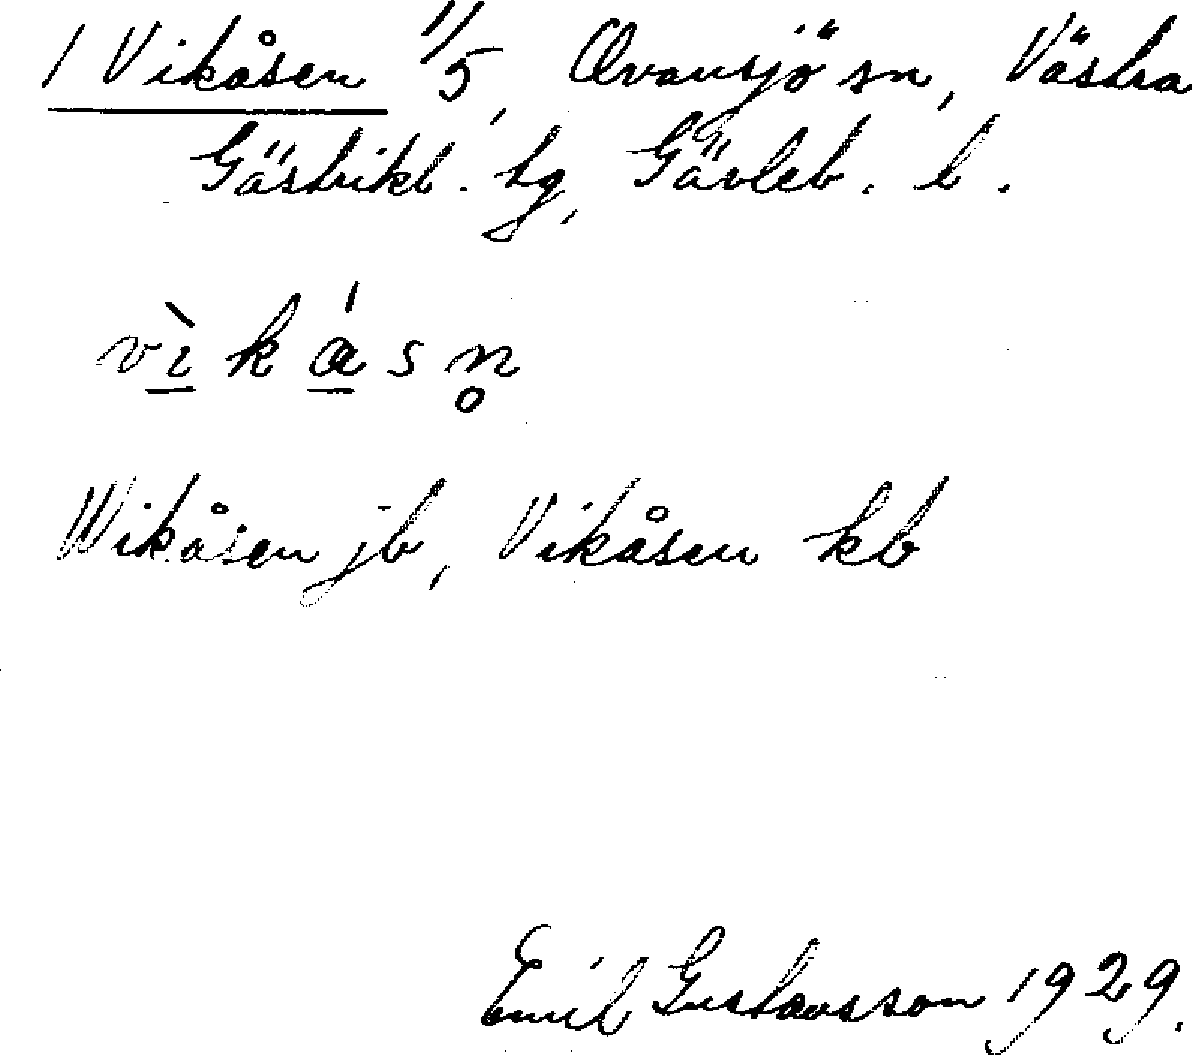 1 Vikåsen 11/5, Ovansjö sn, Västra
Gästrikl. tg, Gävleb. l.
vìkåsn̥
Wikåsen jb, Vikåsen kb
Emil Gustavsson 1929.